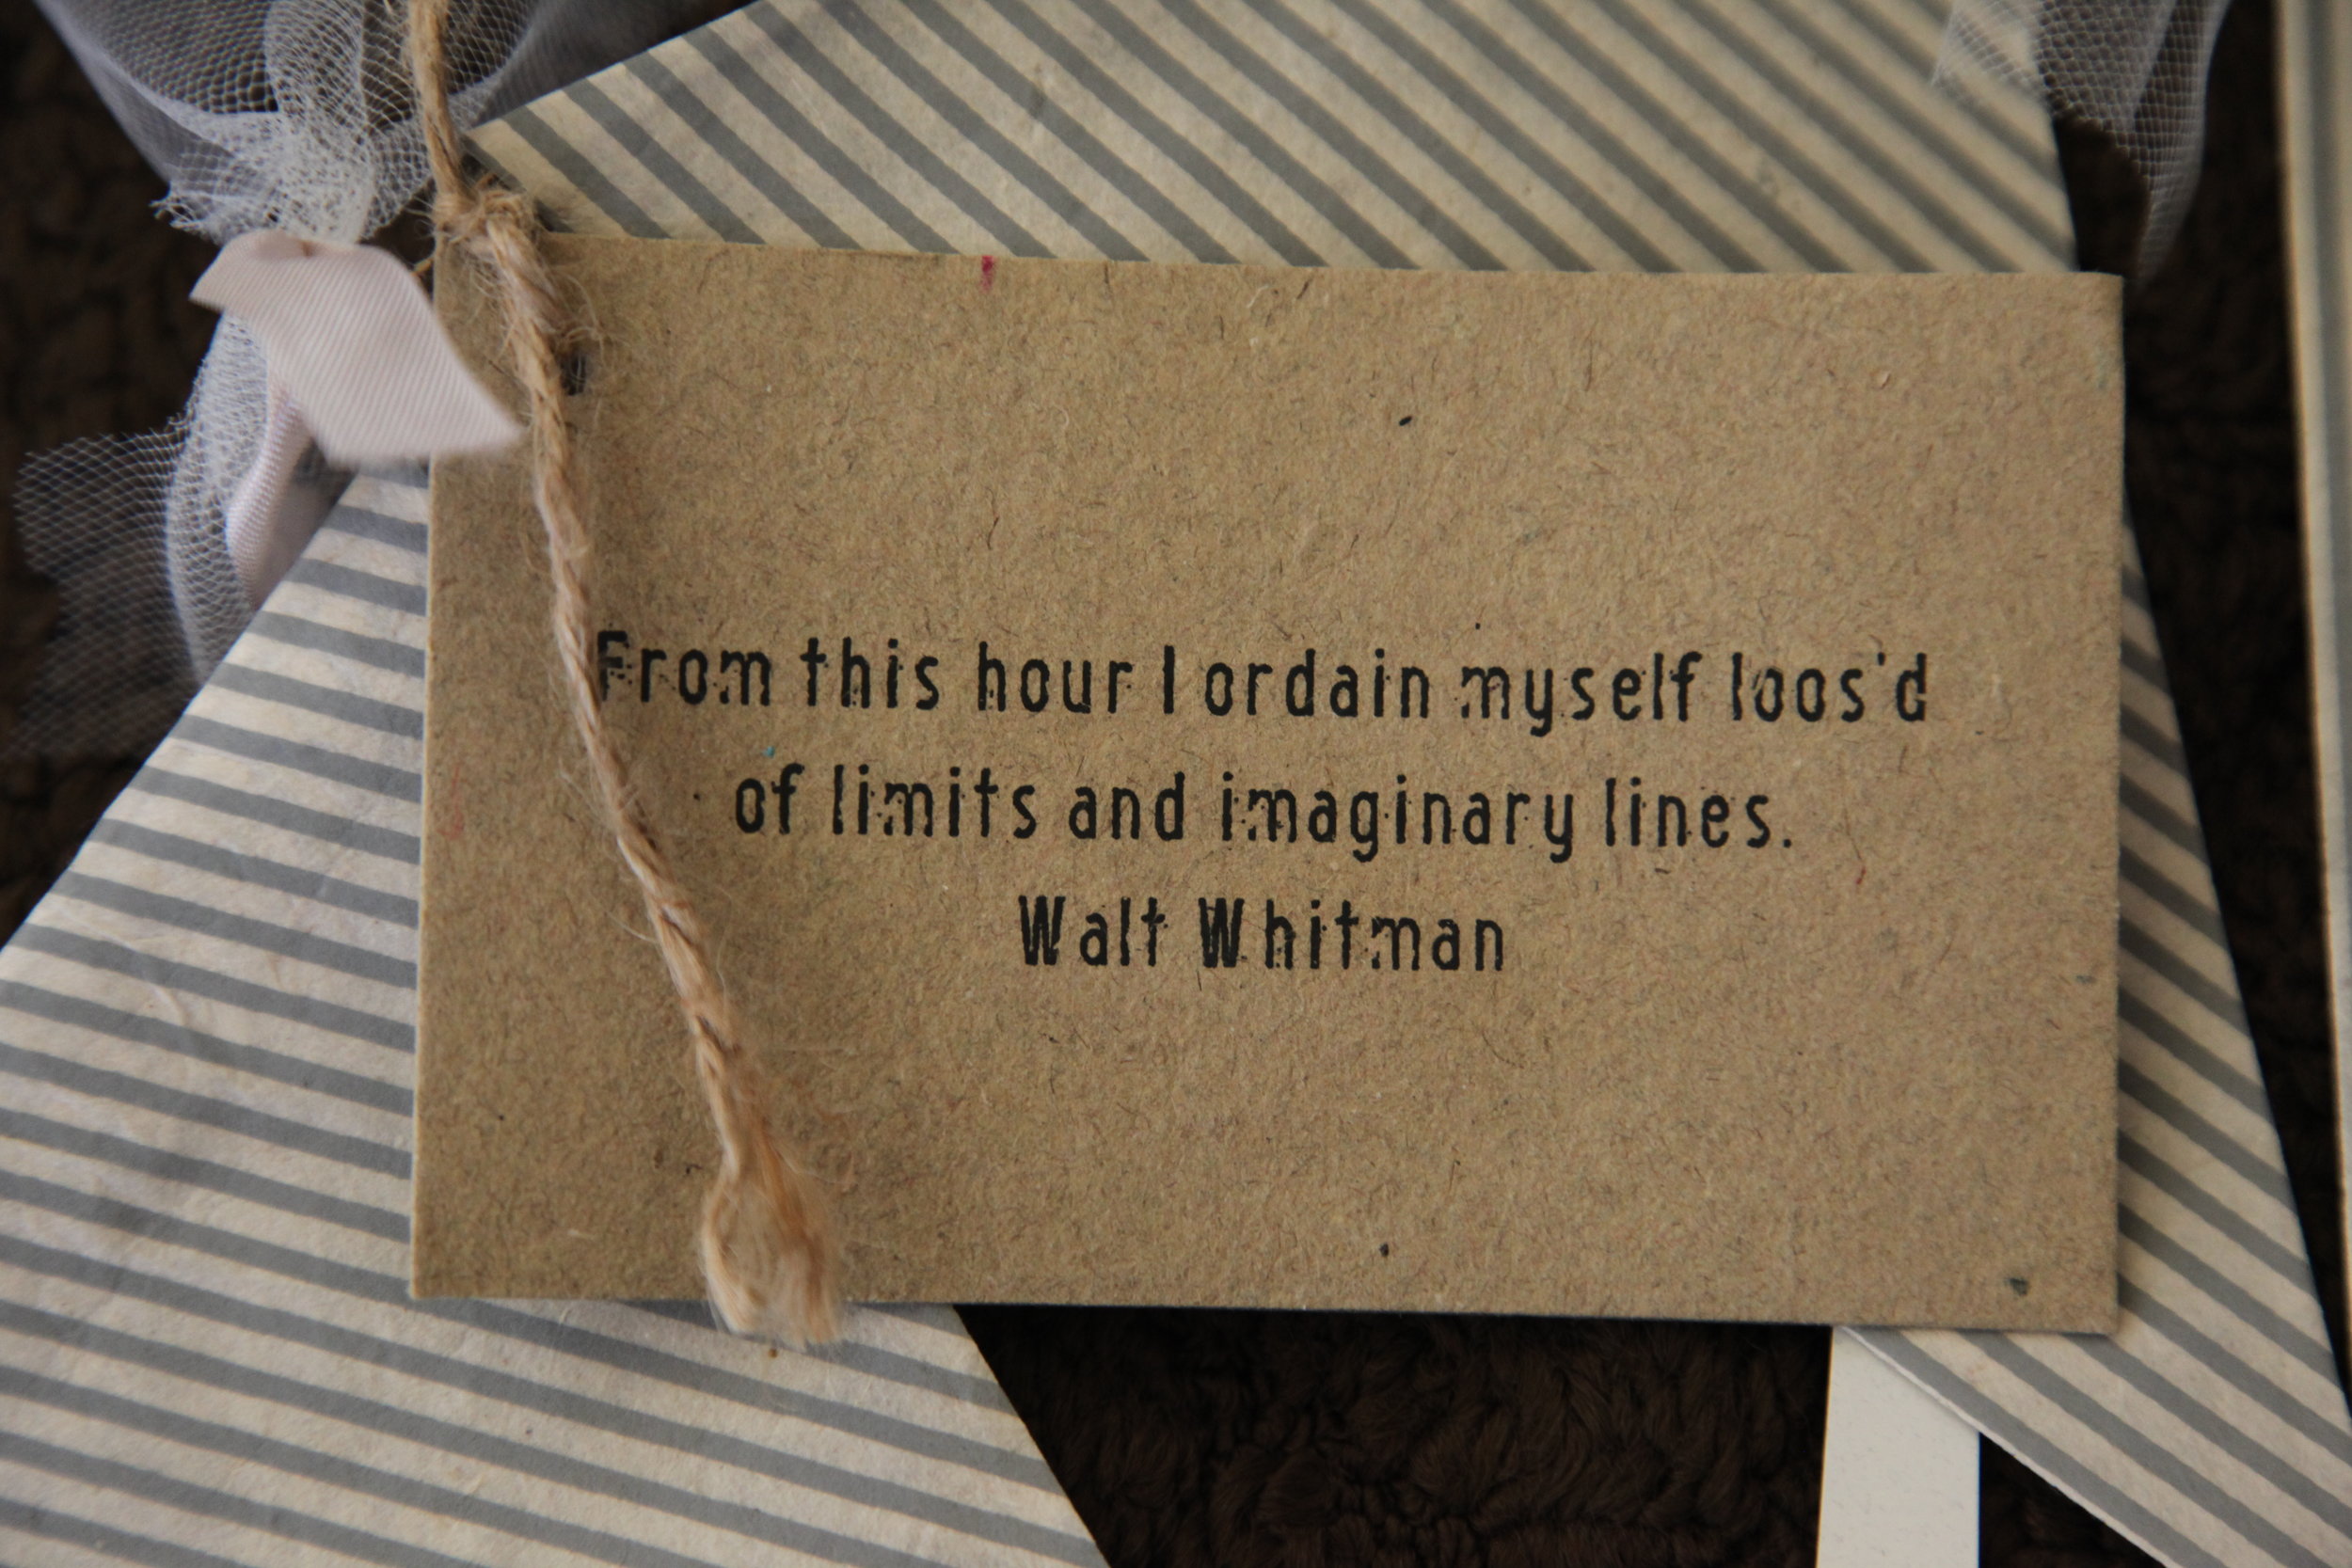 From this hour I ordain myself loos'd
of limits and imaginary lines.
Walt Whitman